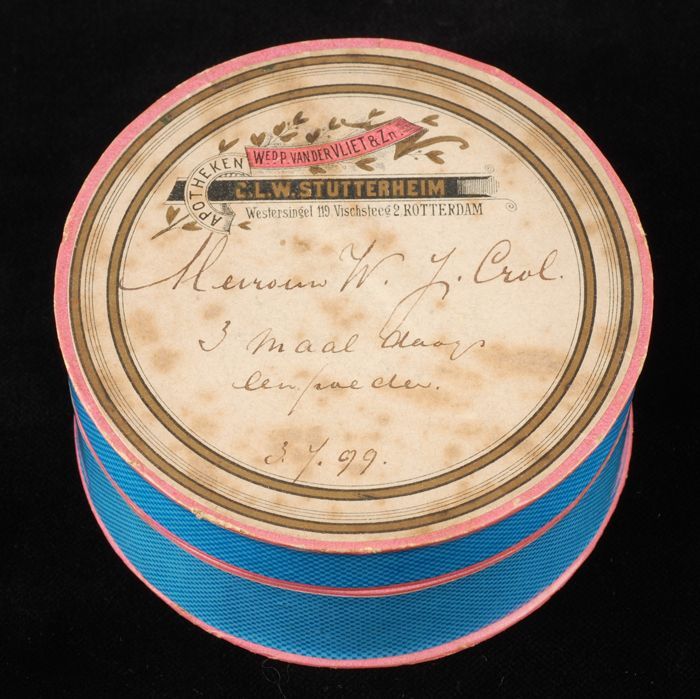 APOTHEKEN
WED P. VAN DER VLIET & Zn.
C.L.W. STUTTERHEIM
Westersingel 119, Vischsteeg 2, ROTTERDAM
Mevrouw W. J. Crol.
3 maal daags
een poeder.
3.7.99.